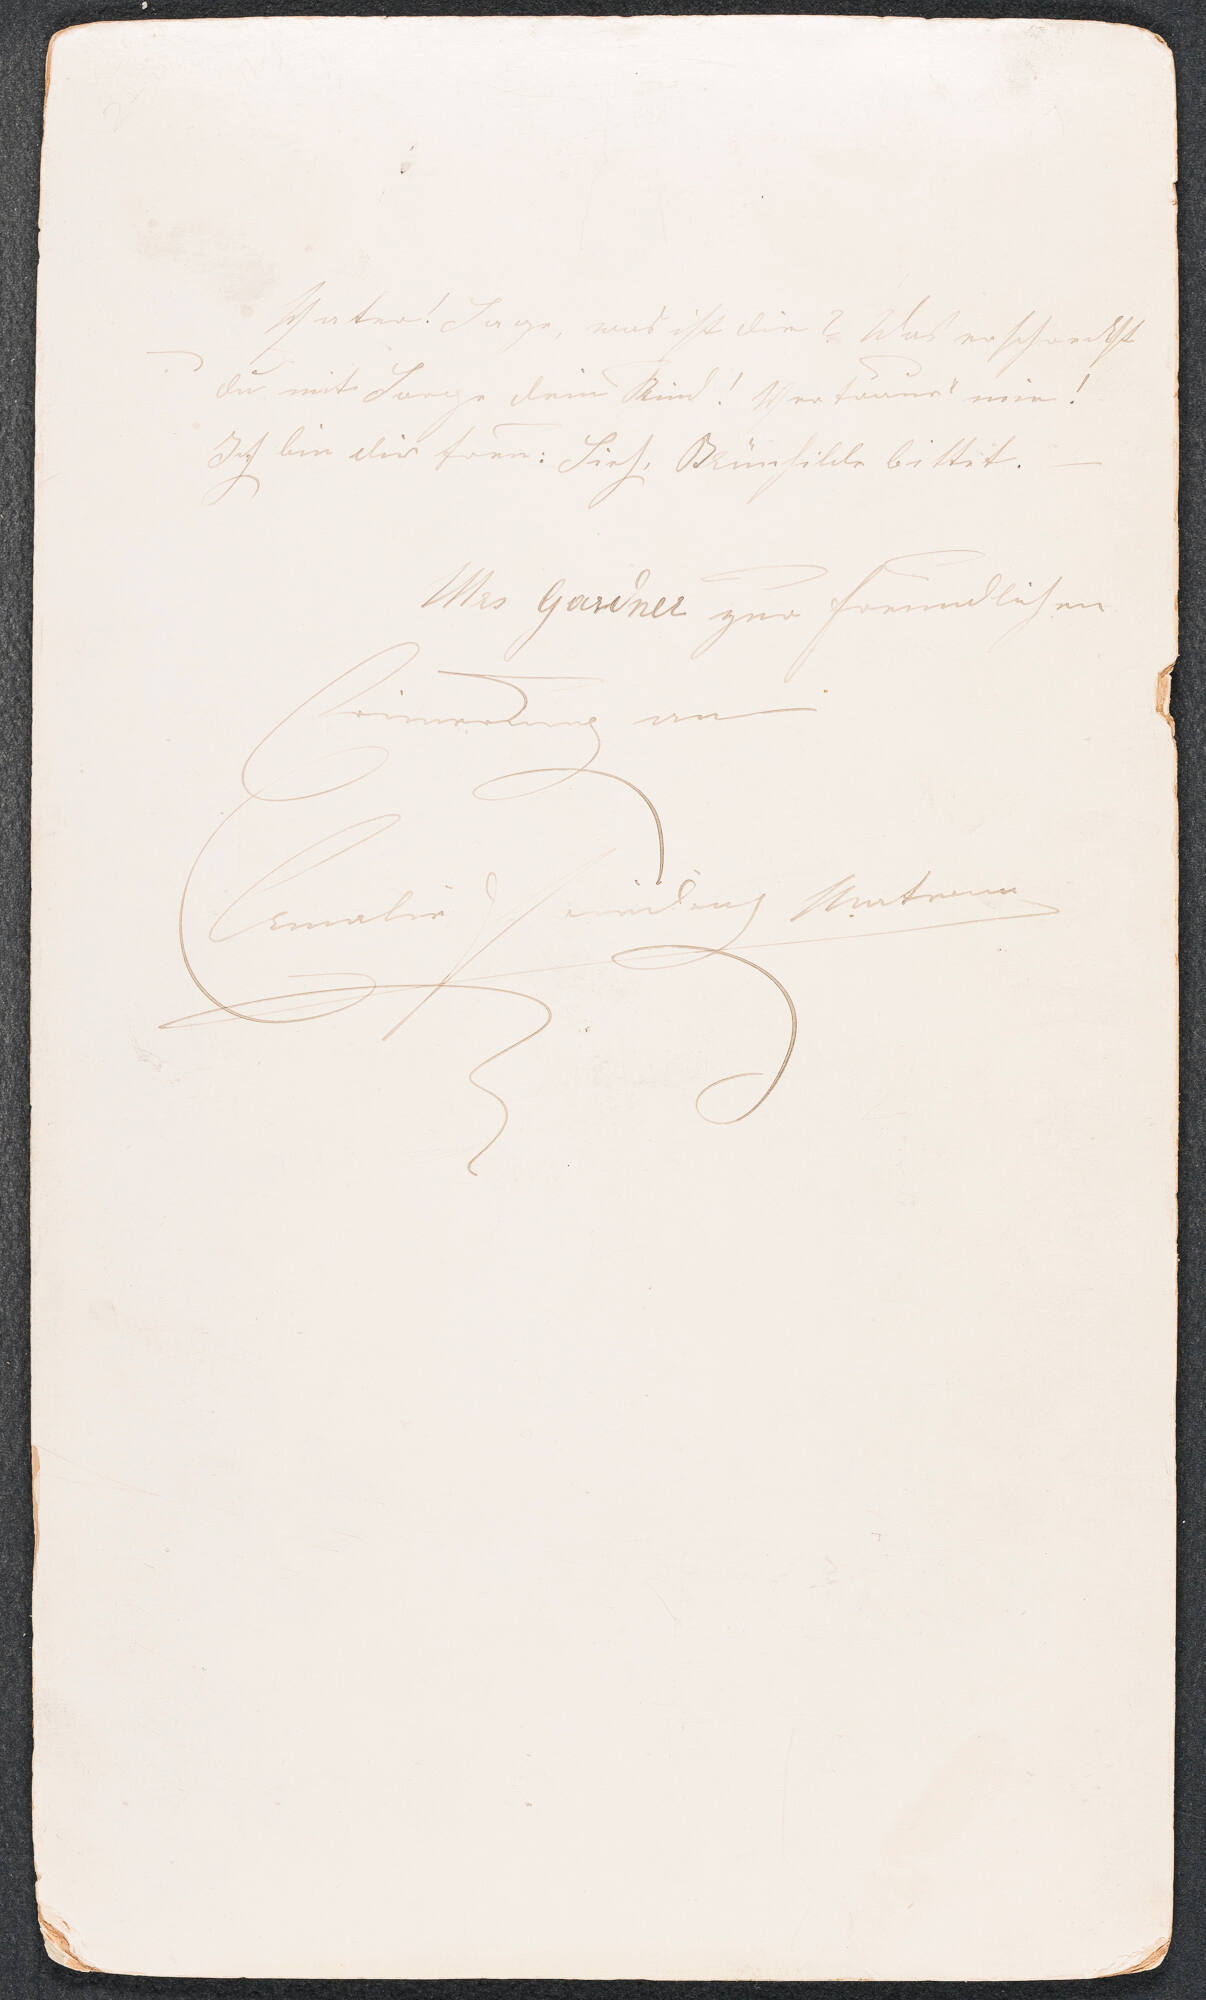 Vater! Sage, was ist dir? Was erschreckst
du mit Sorge dein Kind! Vertraue mir!
Ich bin dir treu: Sieh, Brünhilde bittet. —
Mrs Gardner zur freundlichen
Erinnerung an
Amalie Friedrich Materna